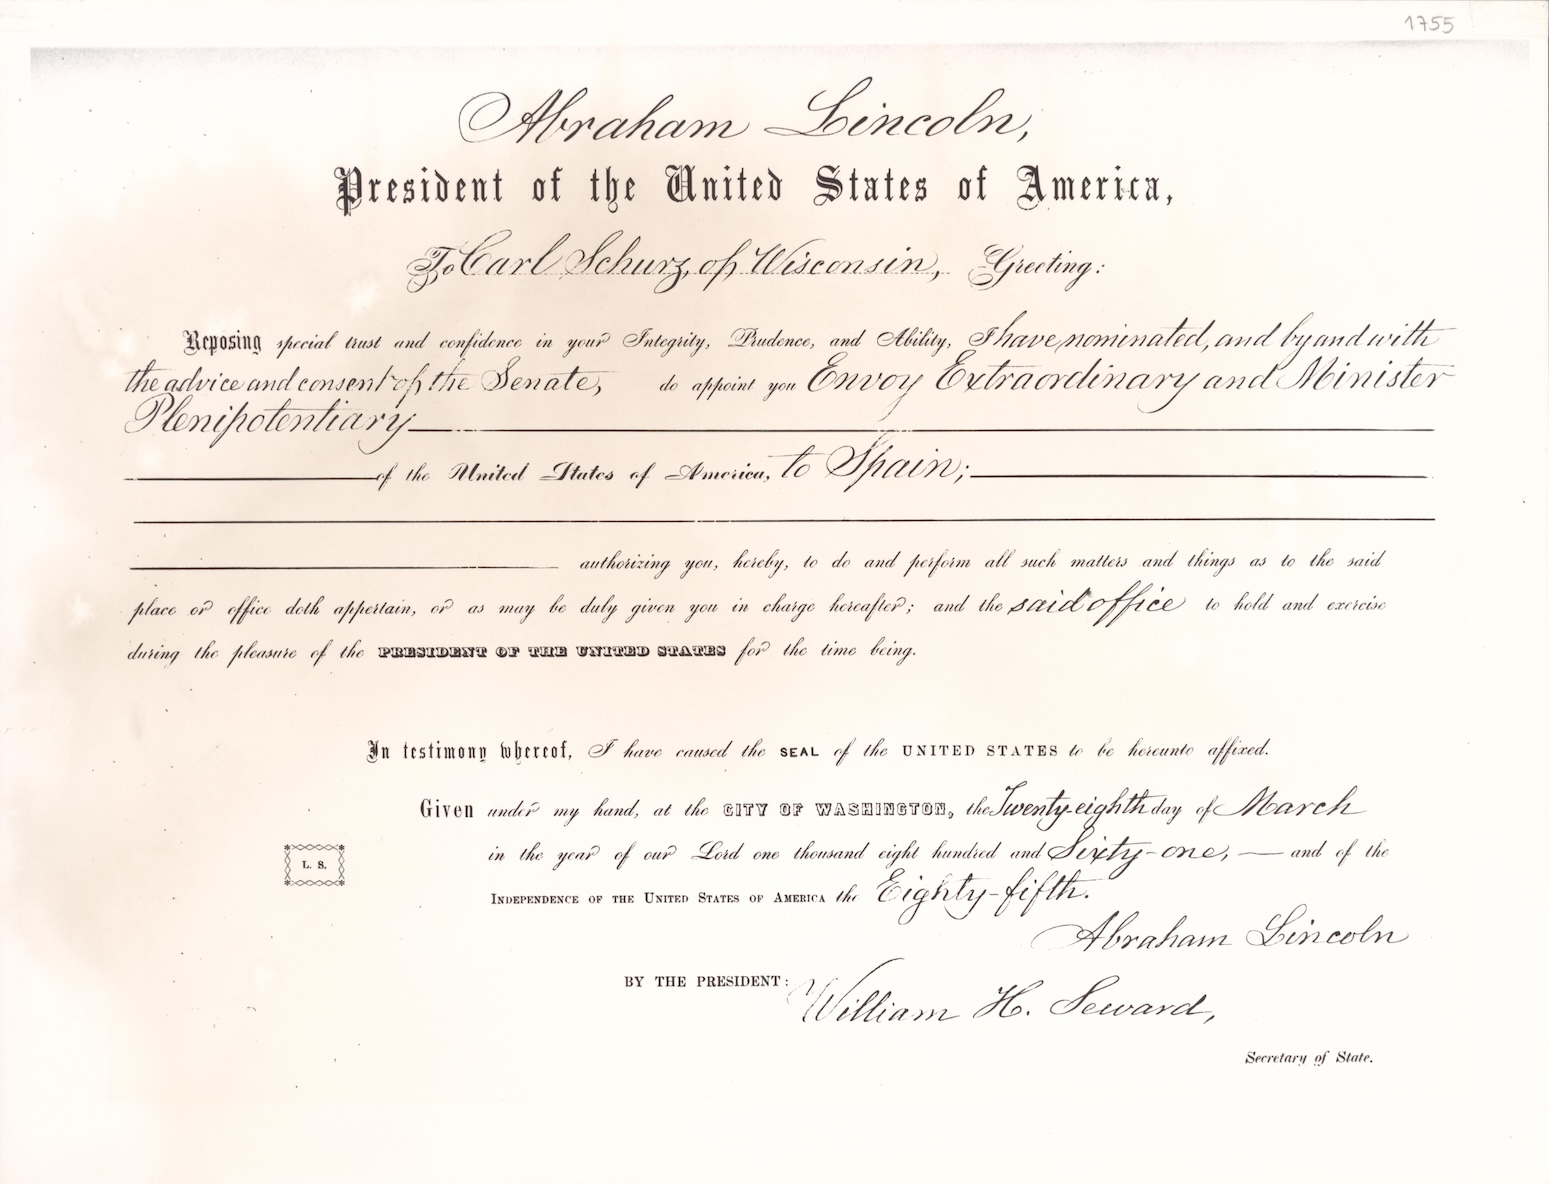 1755
Abraham Lincoln,
President of the United States of America,
To Carl Schurz, of Wisconsin, Greeting:
Reposing special trust and confidence in your Integrity, Prudence, and Ability, I have nominated, and by and with
the advice and consent of the Senate, do appoint you Envoy Extraordinary and Minister
Plenipotentiary
of the United States of America, to Spain;
authorizing you, hereby, to do and perform all such matters and things as to the said
place or office doth appertain, or as may be duly given you in charge hereafter; and the said office to hold and exercise
during the pleasure of the PRESIDENT OF THE UNITED STATES for the time being.
In testimony whereof, I have caused the SEAL of the UNITED STATES to be hereunto affixed.
Given under my hand, at the CITY OF WASHINGTON, the Twenty-eighth day of March
in the year of our Lord one thousand eight hundred and Sixty-one, — and of the
L. S.
INDEPENDENCE OF THE UNITED STATES OF AMERICA the Eighty-fifth.
Abraham Lincoln
BY THE PRESIDENT:
William H. Seward,
Secretary of State.